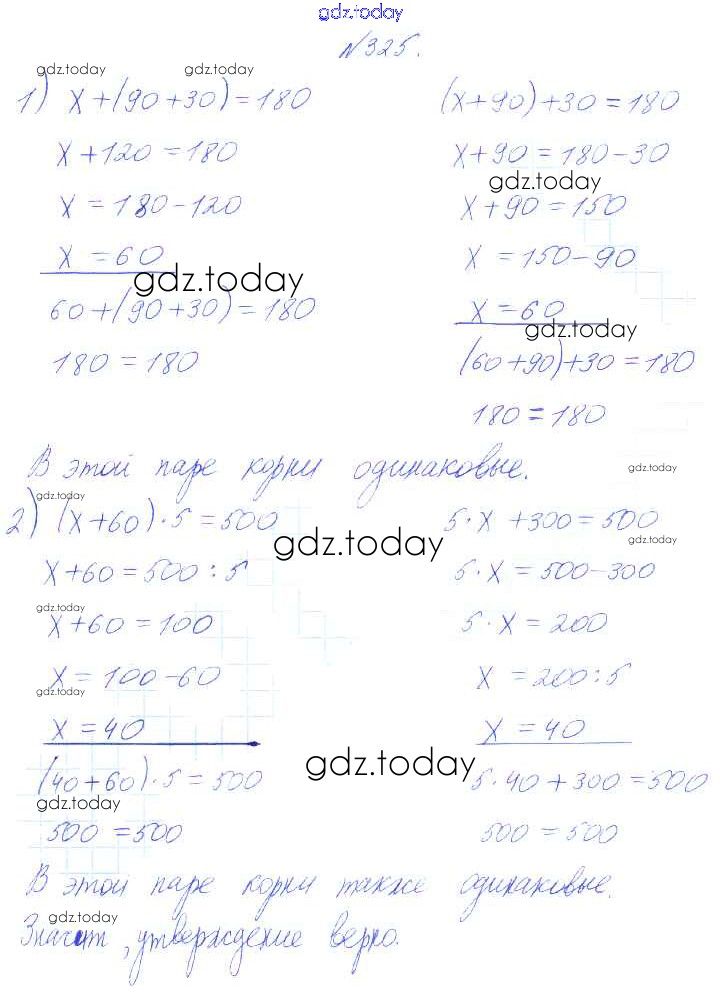 gdz.today
№325.
gdz.today gdz.today
1) x+(90+30)=180 (x+90)+30=180
x+120=180 x+90=180-30
gdz.today
x=180-120 x+90=150
x=60 x=150-90
gdz.today
60+(90+30)=180 x=60
gdz.today
180=180 (60+90)+30=180
180=180
В этой паре корни одинаковые.
gdz.today gdz.today
2) (x+60)·5=500 5·x+300=500
gdz.today
x+60=500:5 5·x=500-300
gdz.today
x+60=100 5·x=200
x=100-60 x=200:5
gdz.today
x=40 x=40
gdz.today
(40+60)·5=500 5·40+300=500
gdz.today
500=500 500=500
В этой паре корни также одинаковые.
gdz.today
Значит, утверждение верно.